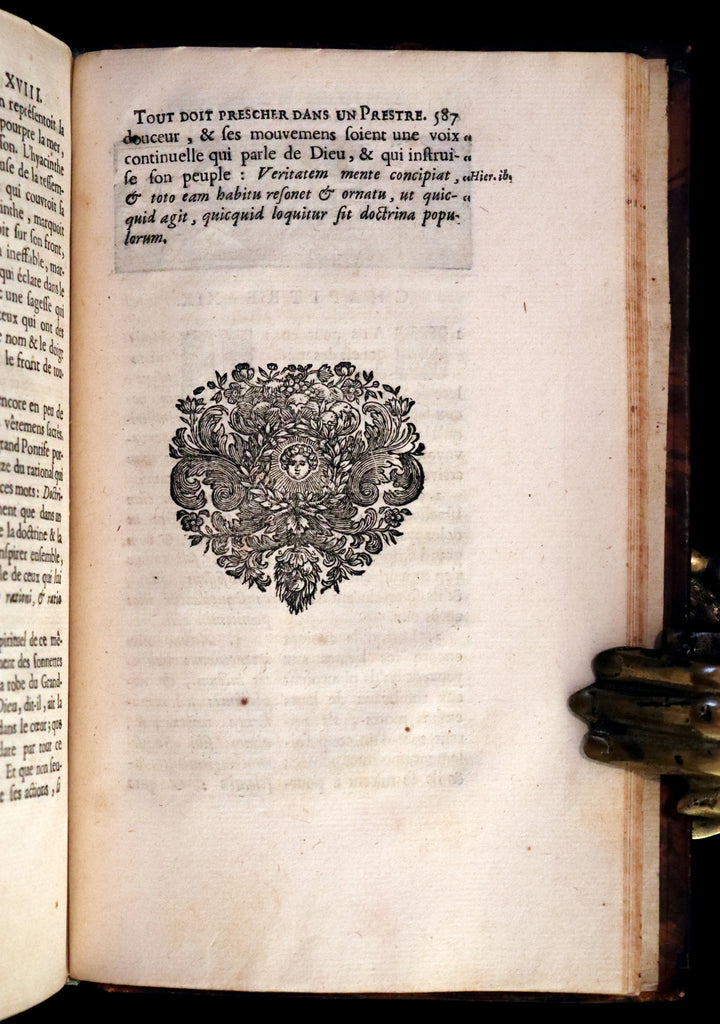 XVIII.
représentois la
pourpre la mer,
son. L'hyacinthe
use de la ressem-
qui couvroit la
inthe, marquoit
oit sur son front,
ineffable, mar-
qui éclate dans le
une sagesse qui
ceux qui ont des
nom & le doigt
le front de tou-
encore en peu de
vêtemens sacrés.
grand Pontife por-
ze du rational qui
ces mots : Doctri-
ment que dans un
e la doctrine & la
nspirer ensemble,
le de ceux qui lui
rationi, & ratio
spirituel de ce mê-
ment des sonnettes
la robe du Grand-
Dieu, dit-il, ait la
dans le cœur; que
clare par tout ce
Et que non seu-
e ses actions, si
TOUT DOIT PRESCHER DANS UN PRESTRE. 587
douceur, & ses mouvemens soient une voix «
continuelle qui parle de Dieu, & qui instrui- «
se son peuple : Veritatem mente concipiat, « Hier. ib.
& toto eam habitu resonet & ornatu, ut quic- «
quid agit, quicquid loquitur sit doctrina popu-
lorum.